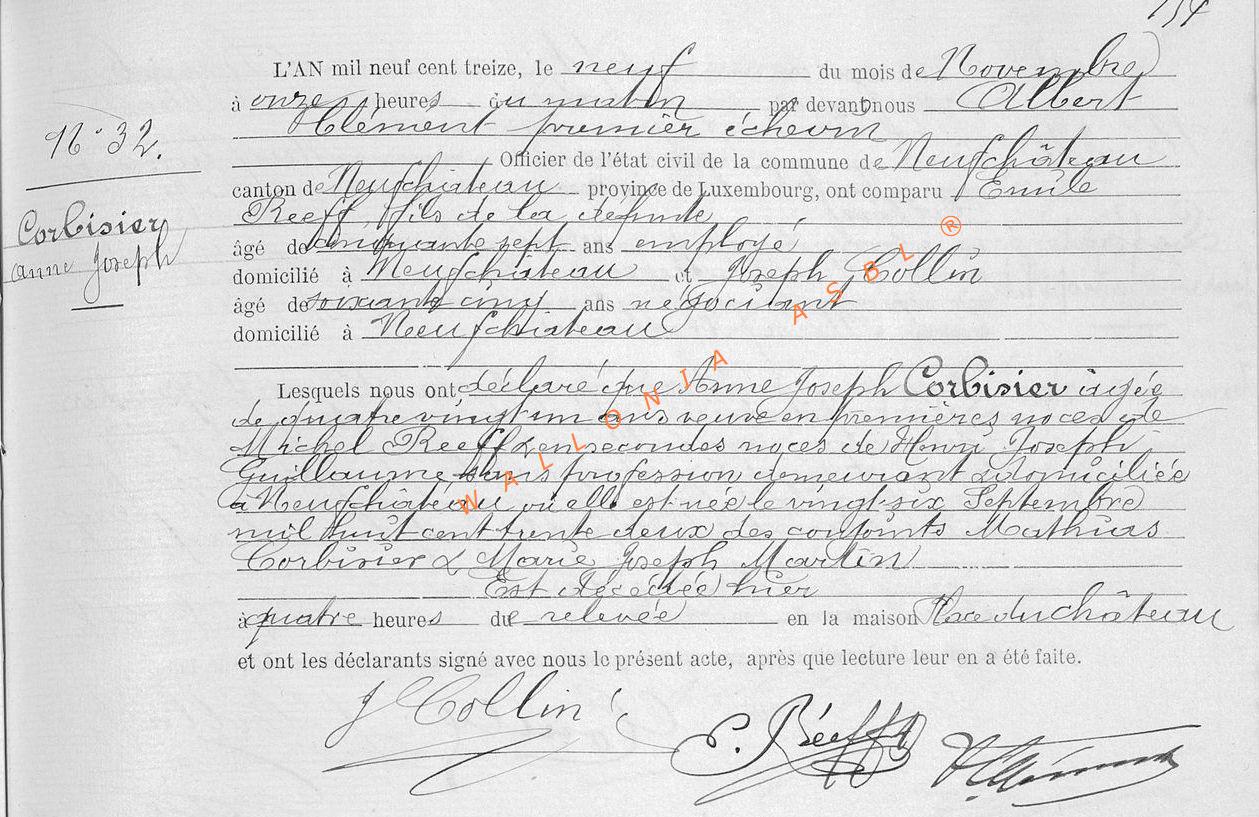 L'AN mil neuf cent treize, le neuf du mois de Novembre
à onze heures du matin par devant nous Albert
Clément premier échevin
N° 32.
Officier de l'état civil de la commune de Neufchâteau
canton de Neufchâteau province de Luxembourg, ont comparu Emile
Corbisier
Anne Joseph
Reeff, fils de la défunte
âgé de cinquante sept ans employé
domicilié à Neufchâteau et Joseph Collin
âgé de soixante cinq ans négociant
domicilié à Neufchateau
Lesquels nous ont déclaré que Anne Joseph Corbisier âgée
de quatre vingt un ans veuve en premières noces de
Michel Reeff & en secondes noces de Henri Joseph
Guillaume sans profession demeurant & domiciliée
à Neufchâteau où elle est née le vingt-six Septembre
mil huit cent trente deux des conjoints Mathias
Corbisier & Marie Joseph Martin
Est décédée hier
à quatre heures de relevée en la maison Place du château
et ont les déclarants signé avec nous le présent acte, après que lecture leur en a été faite.
J Collin
E. Réeff
A Clément
WALLONIA ASBL ®